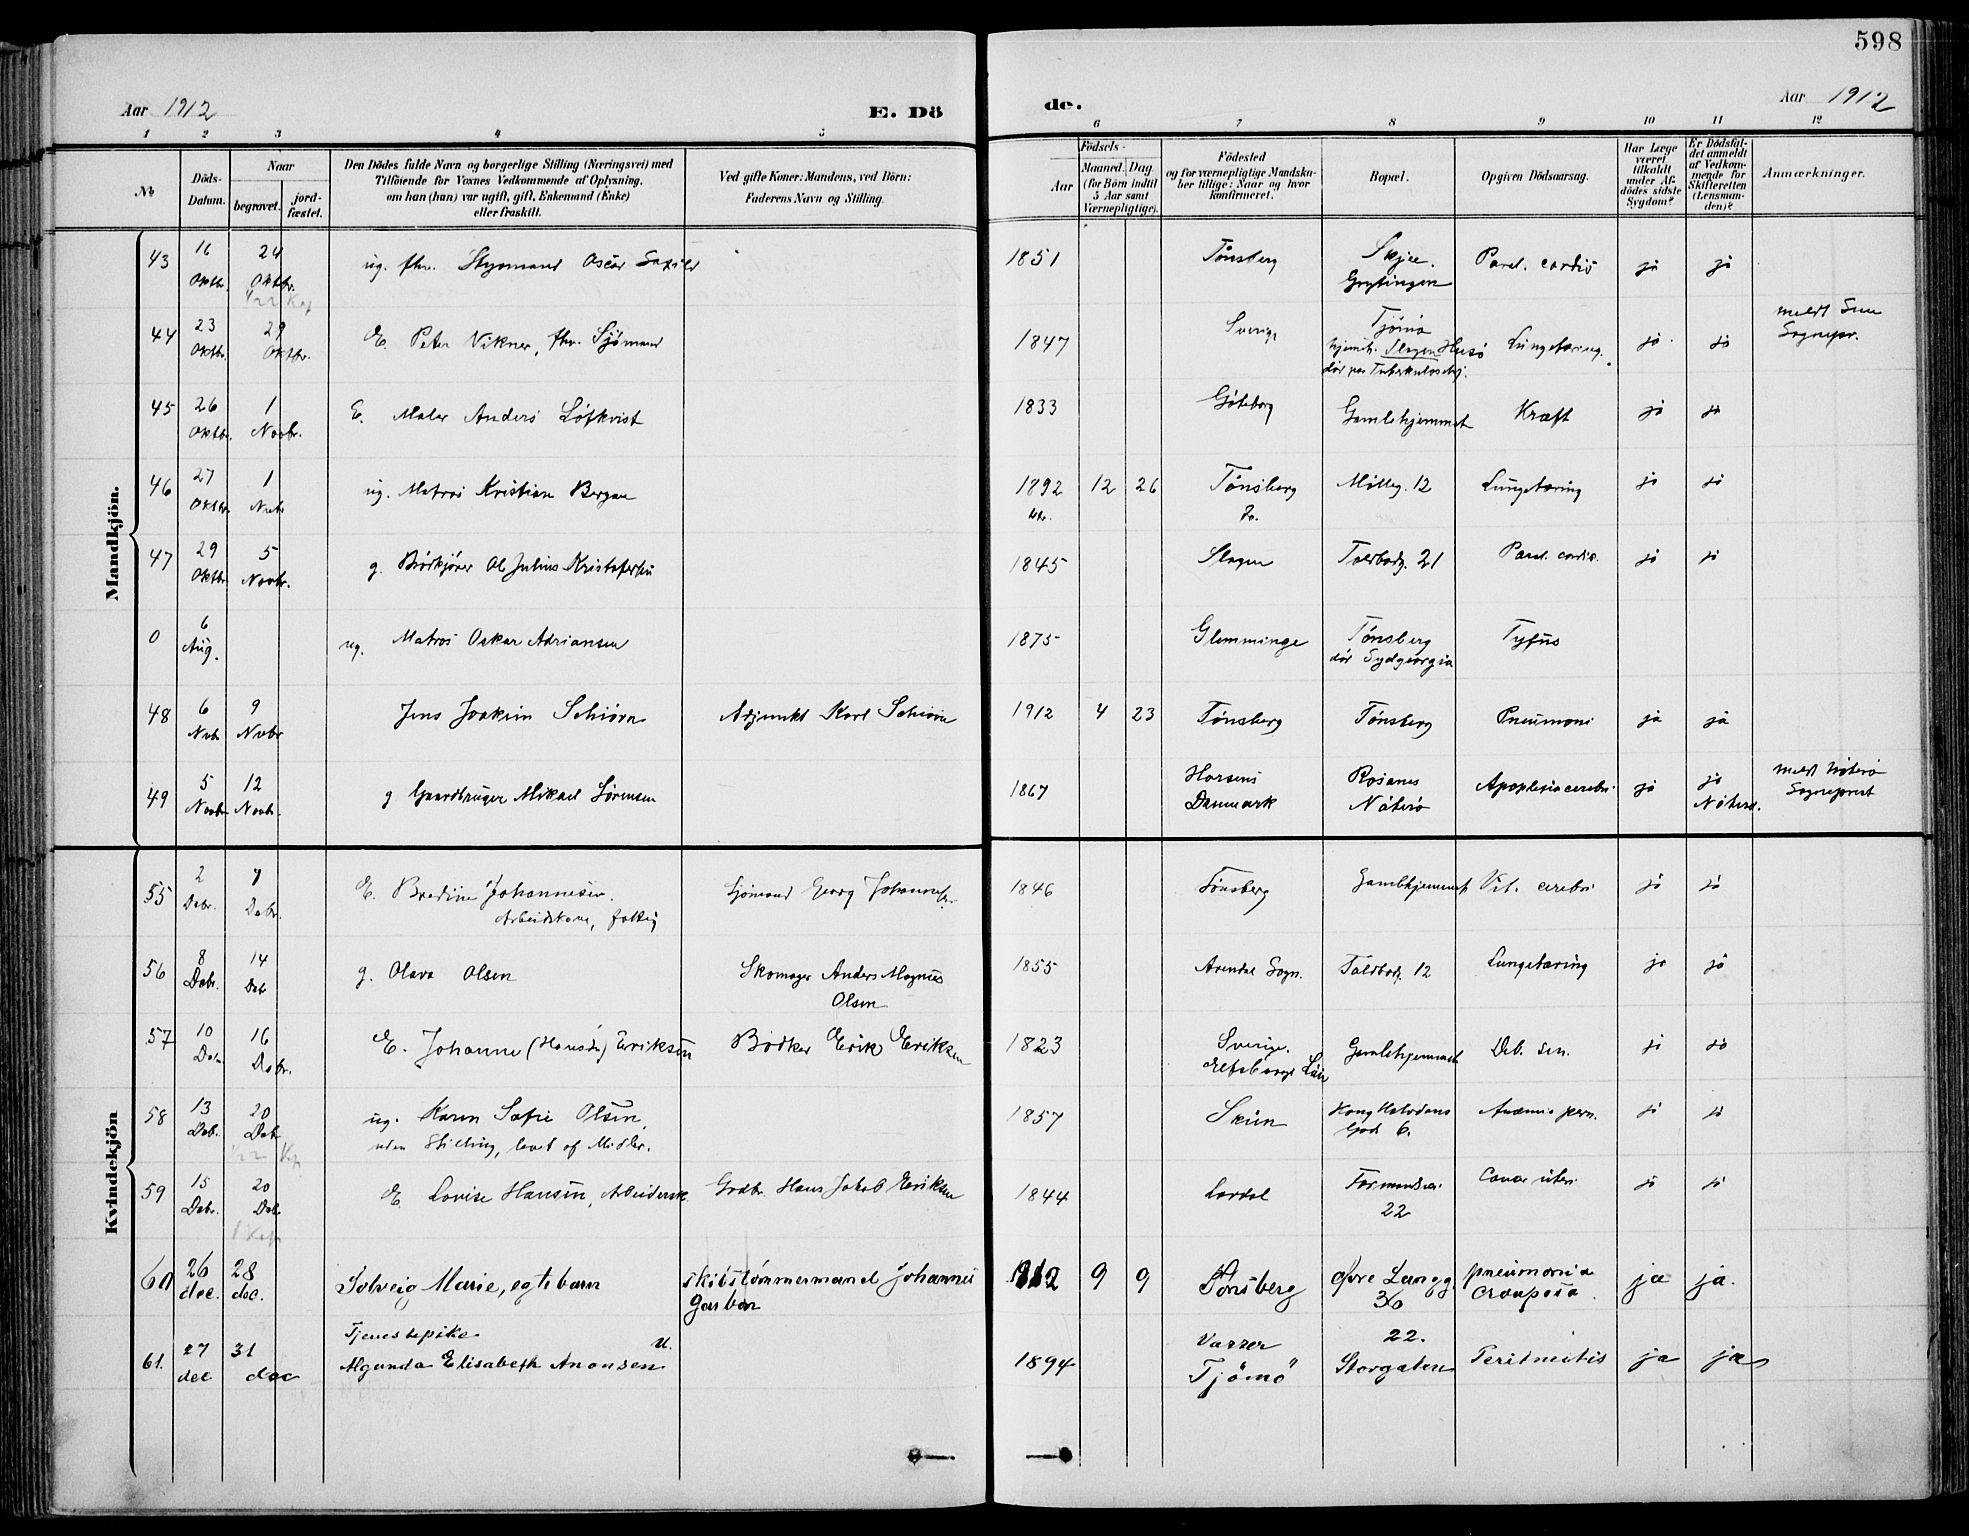 598
Aar 1912
E. Dö
de.
Aar 1912
1 2 3 4 5 6 7 8 9 10 11 12
No
Döds-
Datum.
Naar
begravet.
jord-
fæstet.
Den Dödes fulde Navn og borgerlige Stilling (Næringsvei) med
Tilföiende for Voxnes Vedkommende af Oplysning,
om han (hun) var ugift, gift, Enkemand (Enke)
eller fraskilt.
Ved gifte Koner: Mandens, ved Börn:
Faderens Navn og Stilling.
Födsels-
Aar
Maaned. Dag
(for Börn indtil
5 Aar samt
Værnepligtige).
Födested
og for værnepligtige Mandska-
ber tillige: Naar og hvor
konfirmeret.
Bopæl.
Opgiven Dödsaarsag.
Har Læge
været
tilkaldt
under Af-
dödes sidste
Sygdom?
Er Dödsfal-
det anmeldt
af Vedkom-
mende for
Skifteretten
(Lensman-
den)?
Anmærkninger.
Mandkjön.
43 16 Oktbr. 24 Oktbr. ug. fhv. Oscar 1851 Tönsberg Skjee. Grytingen Paral. cordis ja ja
44 23 Oktbr. 29 Oktbr. E. Peter Vikner, fhv. Sjømand 1847 Sverige Tjömø hjemh. Slagen Husö dör paa Tuberkuloschj. Lungetæring. ja ja meldt Sem Sognepr.
45 26 Oktbr. 1 Novbr. E. Maler Anders Löfkvist 1833 Göteborg Gamlehjemmet Kræft ja ja
46 27 Oktbr. 1 Nvbr ug. Matros Kristian Bergan 1892 12 26 Tönsberg Mölleg. 12 Lungetæring ja ja
47 29 Oktbr. 5 Novbr. g. Ole Julius Kristofersen 1845 Slagen Toldbodg. 21 Paral. cordis. ja ja
0 6 Aug. ug. Matros Oskar Adriansen 1875 Glemminge Tönsberg dör Sydgeorgia Tyfus
48 6 Nvbr 9 Nvbr Jens Joakim Schiörn Adjunkt Karl Schiörn 1912 4 23 Tönsberg Tönsberg Pneumoni ja ja
49 5 Novbr 12 Novbr. g Gaardbruger Mikael Sörensen 1867 Horsens Danmark Rosanes Nöterö Apoplexia cerebri ja ja Nöterö. meldt Nöterö Sogneprest
Kvindekjön
55 2 Debr. 7 Debr. E. Bredine Johannesen. Arbeidskone, fattig Sjömand Georg Johannesen 1846 Tönsberg Gamlehjemmet Vit. cerebri ja ja
56 8 Debr. 14 Debr g. Olava Olsen Skomager Anders Magnus Olsen 1855 Arendal Sogn. Toldbodg. 12 Lungetæring ja ja
57 10 Debr 16 Debr. E. Johanne (Hansdtr) Eriksen Bödker Erik Eriksen 1823 Sverige. Elfsborgs Län Gamlehjemmet Deb. sen. ja ja
58 13 Debr. 20 Debr ug. Karen Sofie Olsen, uden Stilling, levet af Midler. 1857 Skien Hong Halvdans Gade 6. Anæmia pern. ja ja
59 15 Debr. 20 Debr E. Lovise Hansen, Arbeidersk. Grdbr. Hans Jakob Eriksen 1844 Lardal Farmandsv. 22 Cancer uteri ja ja
60 26 dec. 28 dec. Solveig Marie, egte barn skibstömmermand Johannes Garsbon 1912 9 9 Tönsberg Övre Langg. 36 pneumonia crouposa. ja ja.
61. 27 dec 31 dec Tjenestepike Algunda Elisabeth Anonsen u. 1894 Vasser Tjömö 22. Storgaten Peritonitis ja ja